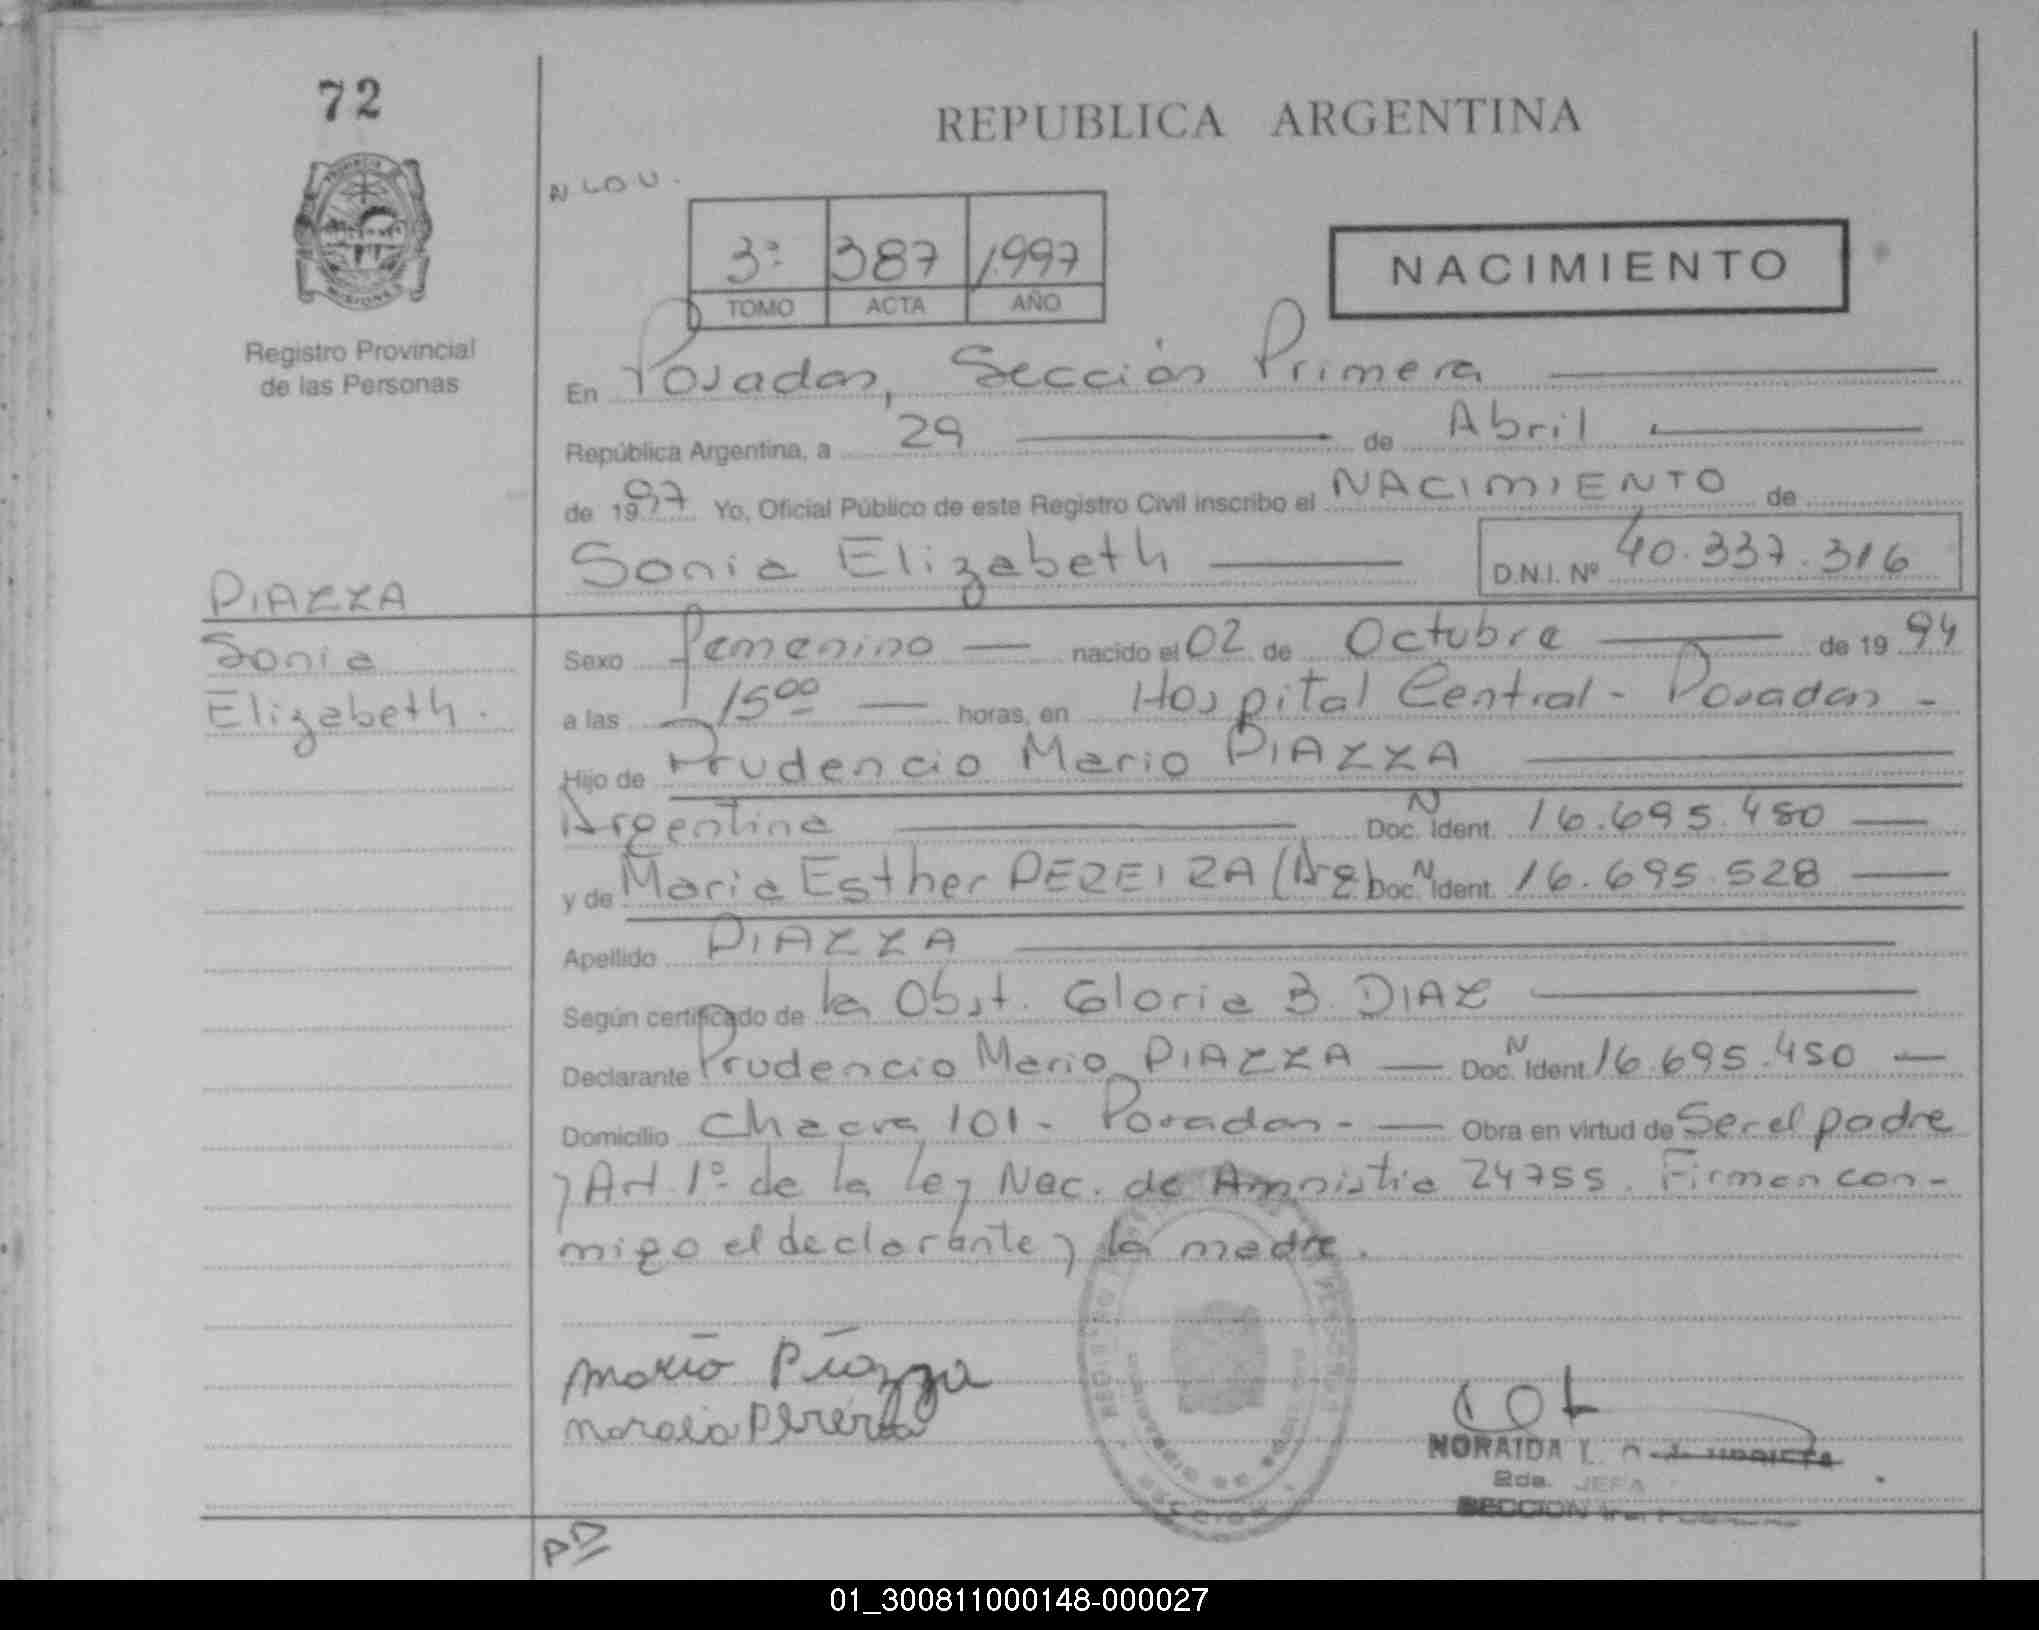 72
REPUBLICA ARGENTINA
Registro Provincial
de las Personas
3º 387 1997
TOMO ACTA AÑO
NACIMIENTO
En Posadas, Sección Primera
República Argentina, a 29 de Abril
de 1997 Yo, Oficial Público de este Registro Civil inscribo el NACIMIENTO de
Sonia Elizabeth D.N.I. Nº 40.337.316
PIAZZA
Sonia
Elizabeth.
Sexo femenino nacido el 02 de Octubre de 1994
a las 15 00 horas, en Hospital Central - Posadas -
Hijo de Prudencio Mario PIAZZA
Argentina Doc. N Ident. 16.695.450
y de Maria Esther PEREIRA (Arg) Doc. N Ident. 16.695.528
Apellido PIAZZA
Según certificado de la Obst. Gloria B. DIAZ
Declarante Prudencio Mario PIAZZA Doc. N Ident. 16.695.450
Domicilio Chacra 101 - Posadas - Obra en virtud de Ser el padre
y Art 1º de la ley Nac. de Amnistia 24755. Firman con-
migo el declarante y la madre.
Mario Piazza
NORAIDA L.
2da. JEFA
SECCION
01_300811000148-000027